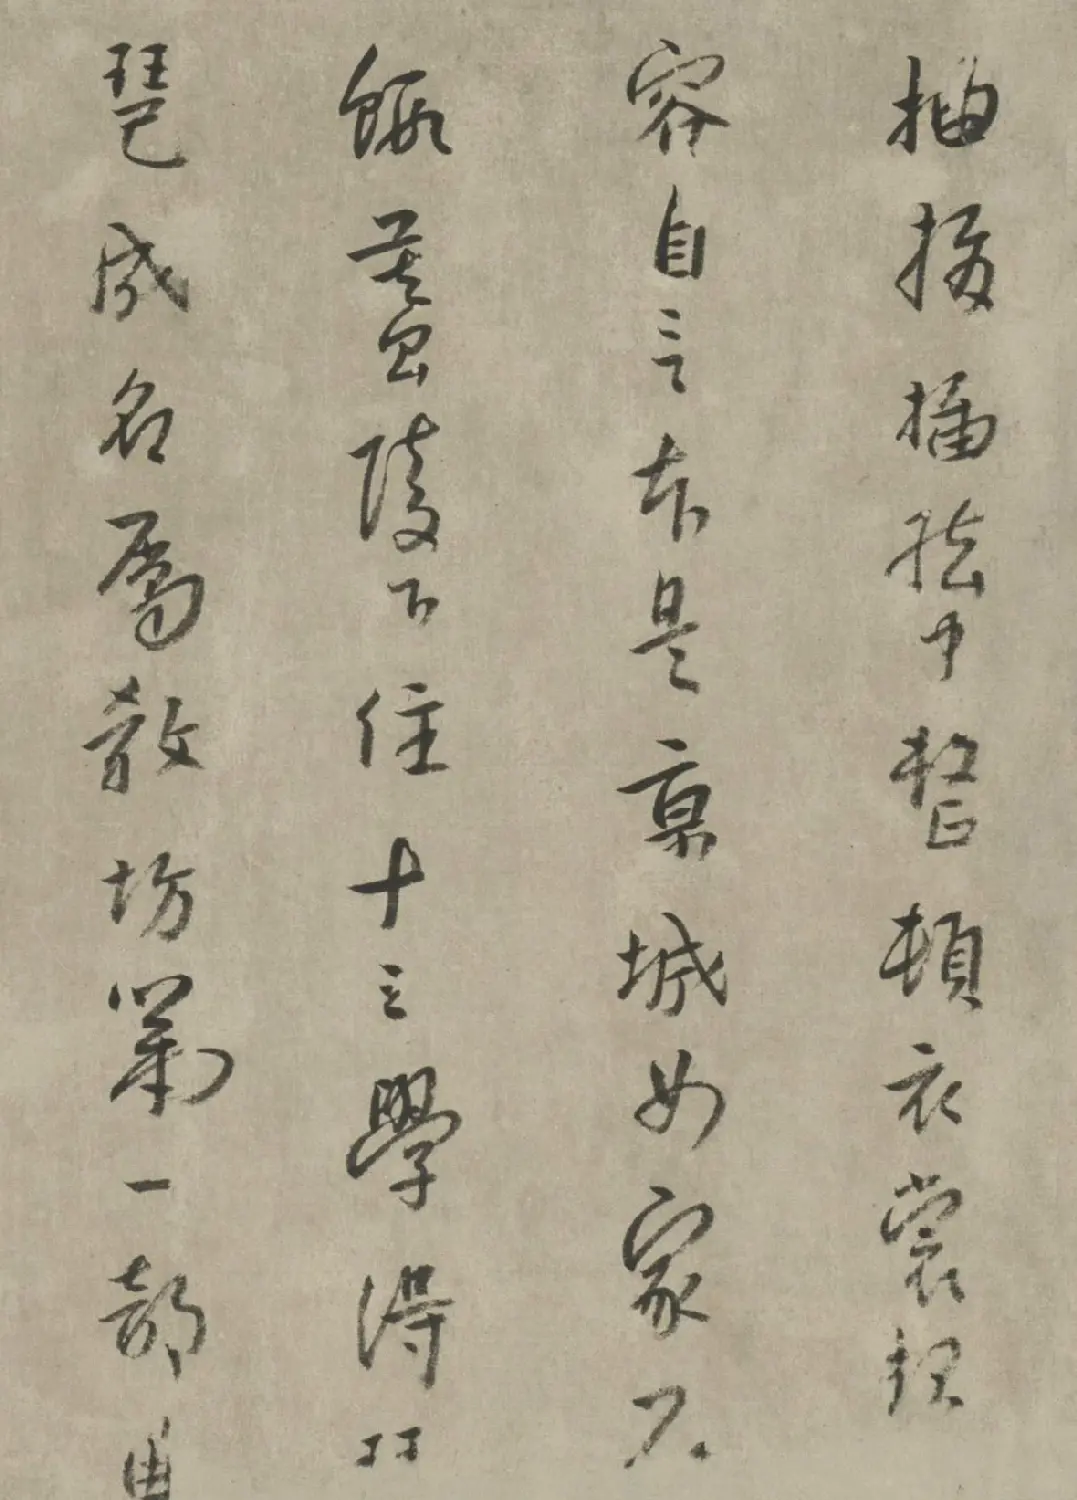 抽撥插絃中整頓衣裳起
容自言本是京城女家在
蝦蟆陵下住十三學得琵
琶成名屬教坊第一部曲